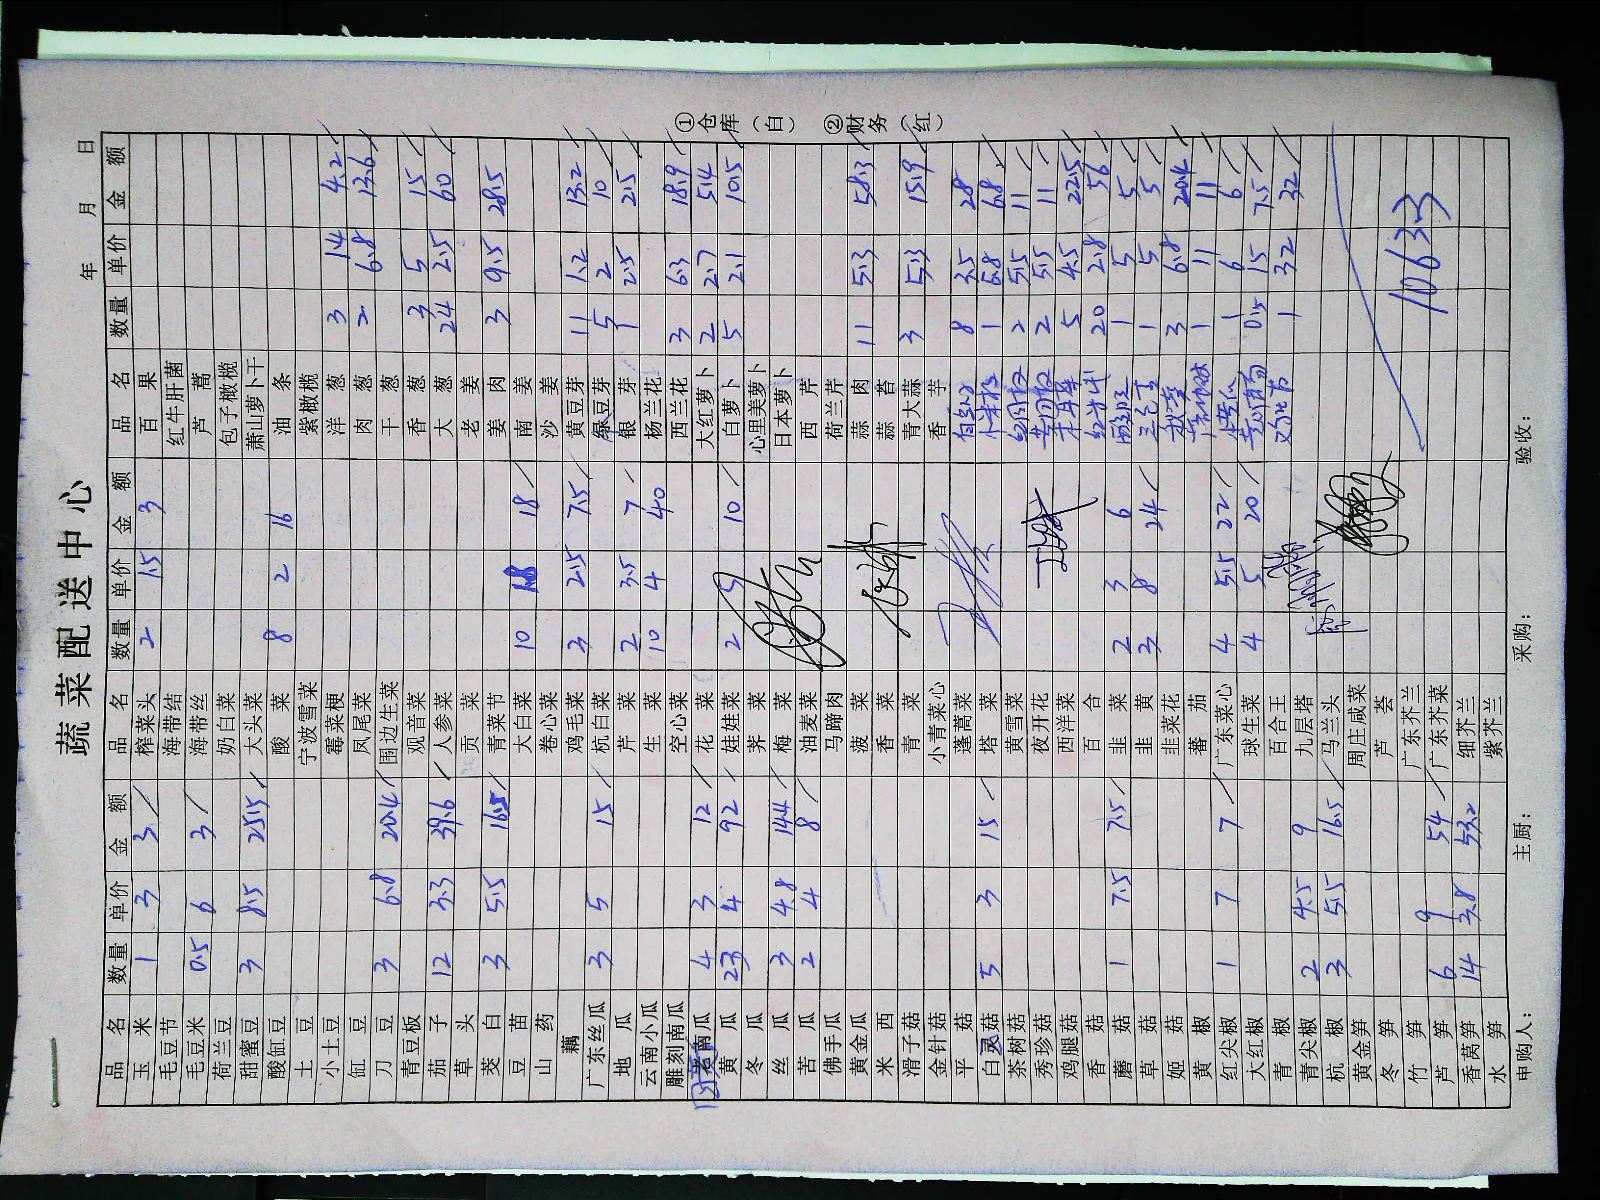 蔬菜配送中心
年 月 日
品名 数量 单价 金额 品名 数量 单价 金额 品名 数量 单价 金额
玉米 1 3 3 榨菜头 2 1.5 3 百果
毛豆节 海带结 红牛肝菌
毛豆米 0.5 6 3 海带丝 芦蒿
荷兰豆 奶白菜 包子橄榄
甜蜜豆 3 8.5 25.5 大头菜 萧山萝卜干
酸缸豆 酸菜 8 2 16 油条
土豆 宁波雪菜 紫橄榄
小土豆 霉菜梗 洋葱 3 14 4.2
缸豆 凤尾菜 肉葱 2 6.8 13.6
刀豆 3 6.8 20.4 围边生菜 干葱
青豆板 观音菜 香葱 3 5 15
茄子 12 3.3 39.6 人参菜 大葱 24 2.5 60
草头 贡菜 老姜
茭白 3 5.5 16.5 青菜节 姜肉 3 9.5 28.5
豆苗 大白菜 10 1.8 18 南姜
山药 卷心菜 沙姜
藕 鸡毛菜 3 2.5 7.5 黄豆芽 11 1.2 13.2
广东丝瓜 3 5 15 杭白菜 绿豆芽 5 2 10
地瓜 芹菜 2 3.5 7 银芽 1 2.5 2.5
云南小瓜 生菜 10 4 40 杨兰花
雕刻南瓜 空心菜 西兰花 3 6.3 18.9
南瓜 4 3 12 花菜 大红萝卜 2 2.7 5.4
黄瓜 23 4 92 娃娃菜 2 5 10 白萝卜 5 2.1 10.5
冬瓜 荠菜 心里美萝卜
丝瓜 3 4.8 14.4 梅菜 日本萝卜
苦瓜 2 4 8 油麦菜 西芹
佛手瓜 马蹄肉 荷兰芹
黄金瓜 菠菜 蒜肉 11 5.3 58.3
米西 香菜 蒜苔
滑子菇 青菜 青大蒜 3 5.3 15.9
金针菇 小青菜心 香芋
平菇 蓬蒿菜 8 3.5 28
白灵菇 5 3 15 塔菜 小米椒 1 6.8 6.8
茶树菇 黄雪菜 红圆椒 2 5.5 11
秀珍菇 夜开花 黄圆椒 2 5.5 11
鸡腿菇 西洋菜 5 4.5 22.5
香菇 百合 20 2.8 56
蘑菇 1 7.5 7.5 韭菜 2 3 6 1 5 5
草菇 韭黄 3 8 24 1 5 5
姬菇 韭菜花 秋葵 3 6.8 20.4
黄椒 蕃茄 1 11 11
红尖椒 1 7 7 广东菜心 4 5.5 22 小黄瓜 1 6 6
大红椒 球生菜 4 5 20 0.5 15 7.5
青椒 百合王 1 32 32
青尖椒 2 4.5 9 九层塔
杭椒 3 5.5 16.5 马兰头
黄金笋 周庄咸菜
冬笋 芦荟
竹笋 广东芥兰
芦笋 6 9 54 广东芥菜
香莴笋 14 3.8 53.2 细芥兰
水笋 紫芥兰
1063.3
申购人： 主厨： 采购： 验收：
①仓库（白） ②财务（红）